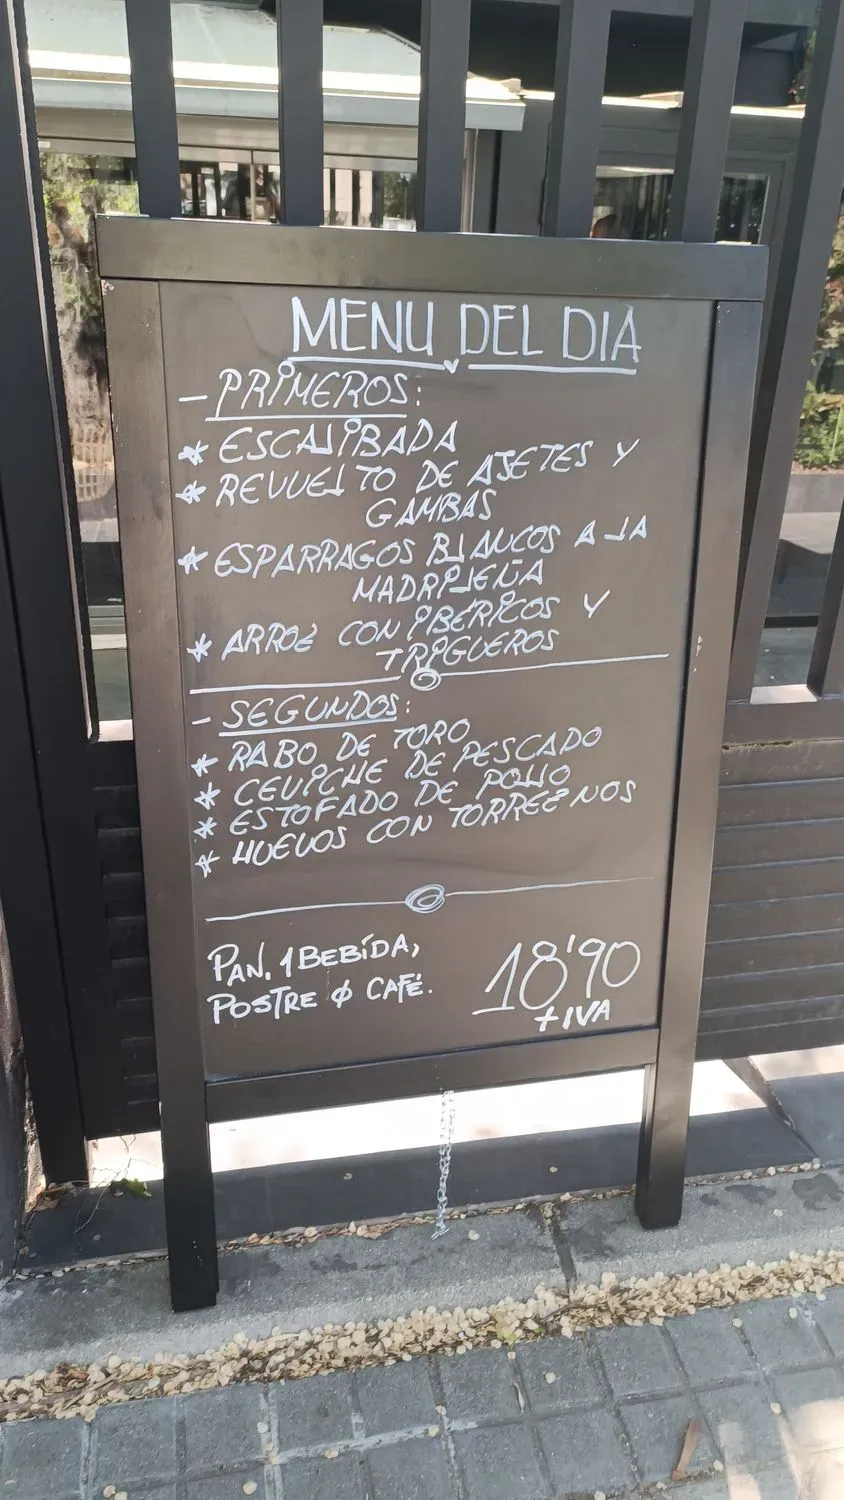 MENU DEL DIA
- PRIMEROS:
* ESCALIBADA
* REVUELTO DE AJETES Y
GAMBAS
* ESPARRAGOS BLANCOS A LA
MADRILEÑA
* ARROZ CON IBÉRICOS Y
TRIGUEROS
- SEGUNDOS:
* RABO DE TORO
* CEVICHE DE PESCADO
* ESTOFADO DE POLLO
* HUEVOS CON TORREZNOS
PAN, 1 BEBIDA,
POSTRE O CAFÉ.
18'90
+ IVA